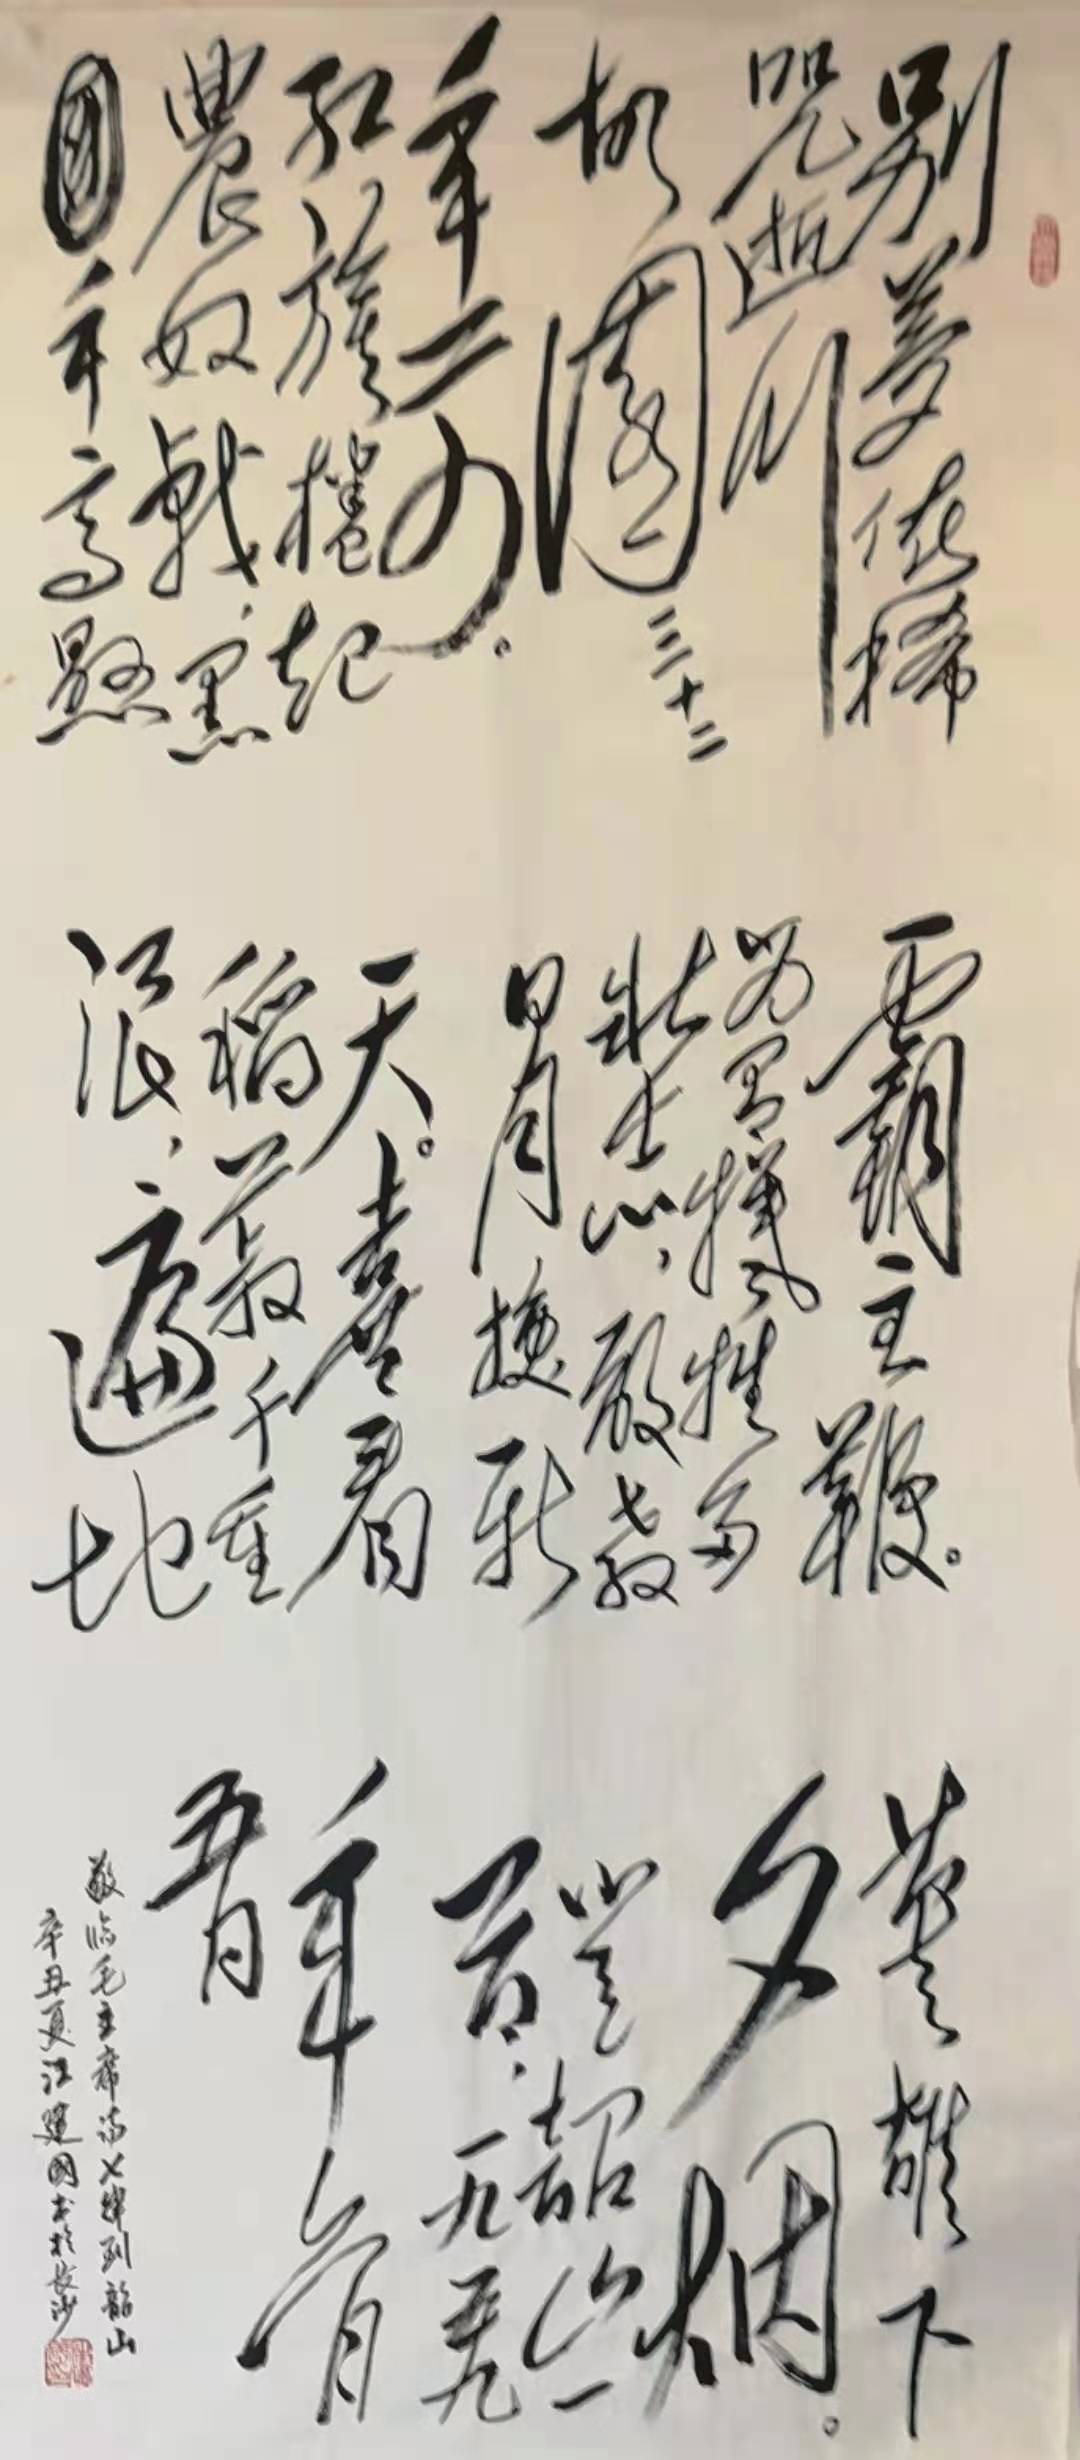 别夢依稀
咒逝川
故園三十二
年前。
红旗捲起
農奴戟，黑
手高懸
霸主鞭。
为有犧牲多
壯志，敢教
日月换新
天。喜看
稻菽千重
浪，遍地
英雄下
夕烟。
登韶山一
首，一九五九
年六月
敬临毛主席诗七律到韶山
辛丑夏汪建國书於长沙